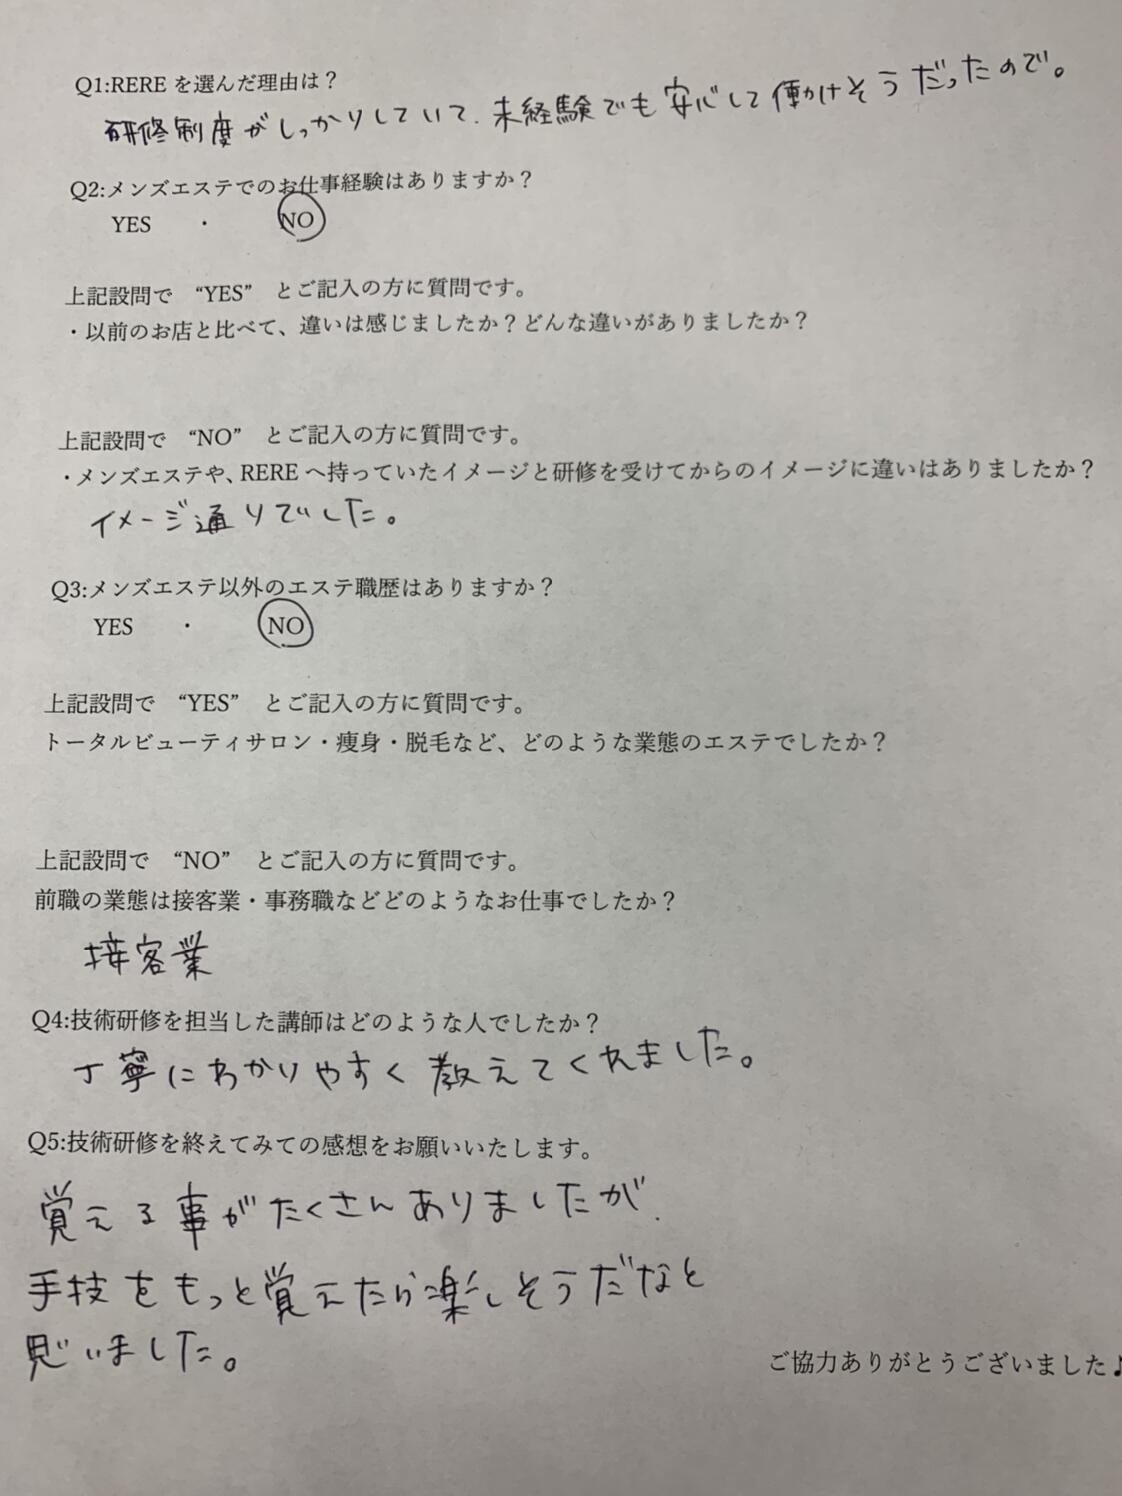 Q1:REREを選んだ理由は？
研修制度がしっかりしていて、未経験でも安心して働けそうだったので。
Q2:メンズエステでのお仕事経験はありますか？
YES ・ NO
上記設問で “YES” とご記入の方に質問です。
・以前のお店と比べて、違いは感じましたか？どんな違いがありましたか？
上記設問で “NO” とご記入の方に質問です。
・メンズエステや、REREへ持っていたイメージと研修を受けてからのイメージに違いはありましたか？
イメージ通りでした。
Q3:メンズエステ以外のエステ職歴はありますか？
YES ・ NO
上記設問で “YES” とご記入の方に質問です。
トータルビューティサロン・痩身・脱毛など、どのような業態のエステでしたか？
上記設問で “NO” とご記入の方に質問です。
前職の業態は接客業・事務職などどのようなお仕事でしたか？
接客業
Q4:技術研修を担当した講師はどのような人でしたか？
丁寧にわかりやすく教えてくれました。
Q5:技術研修を終えてみての感想をお願いいたします。
覚える事がたくさんありましたが、
手技をもっと覚えたら楽しそうだなと
思いました。
ご協力ありがとうございました♪